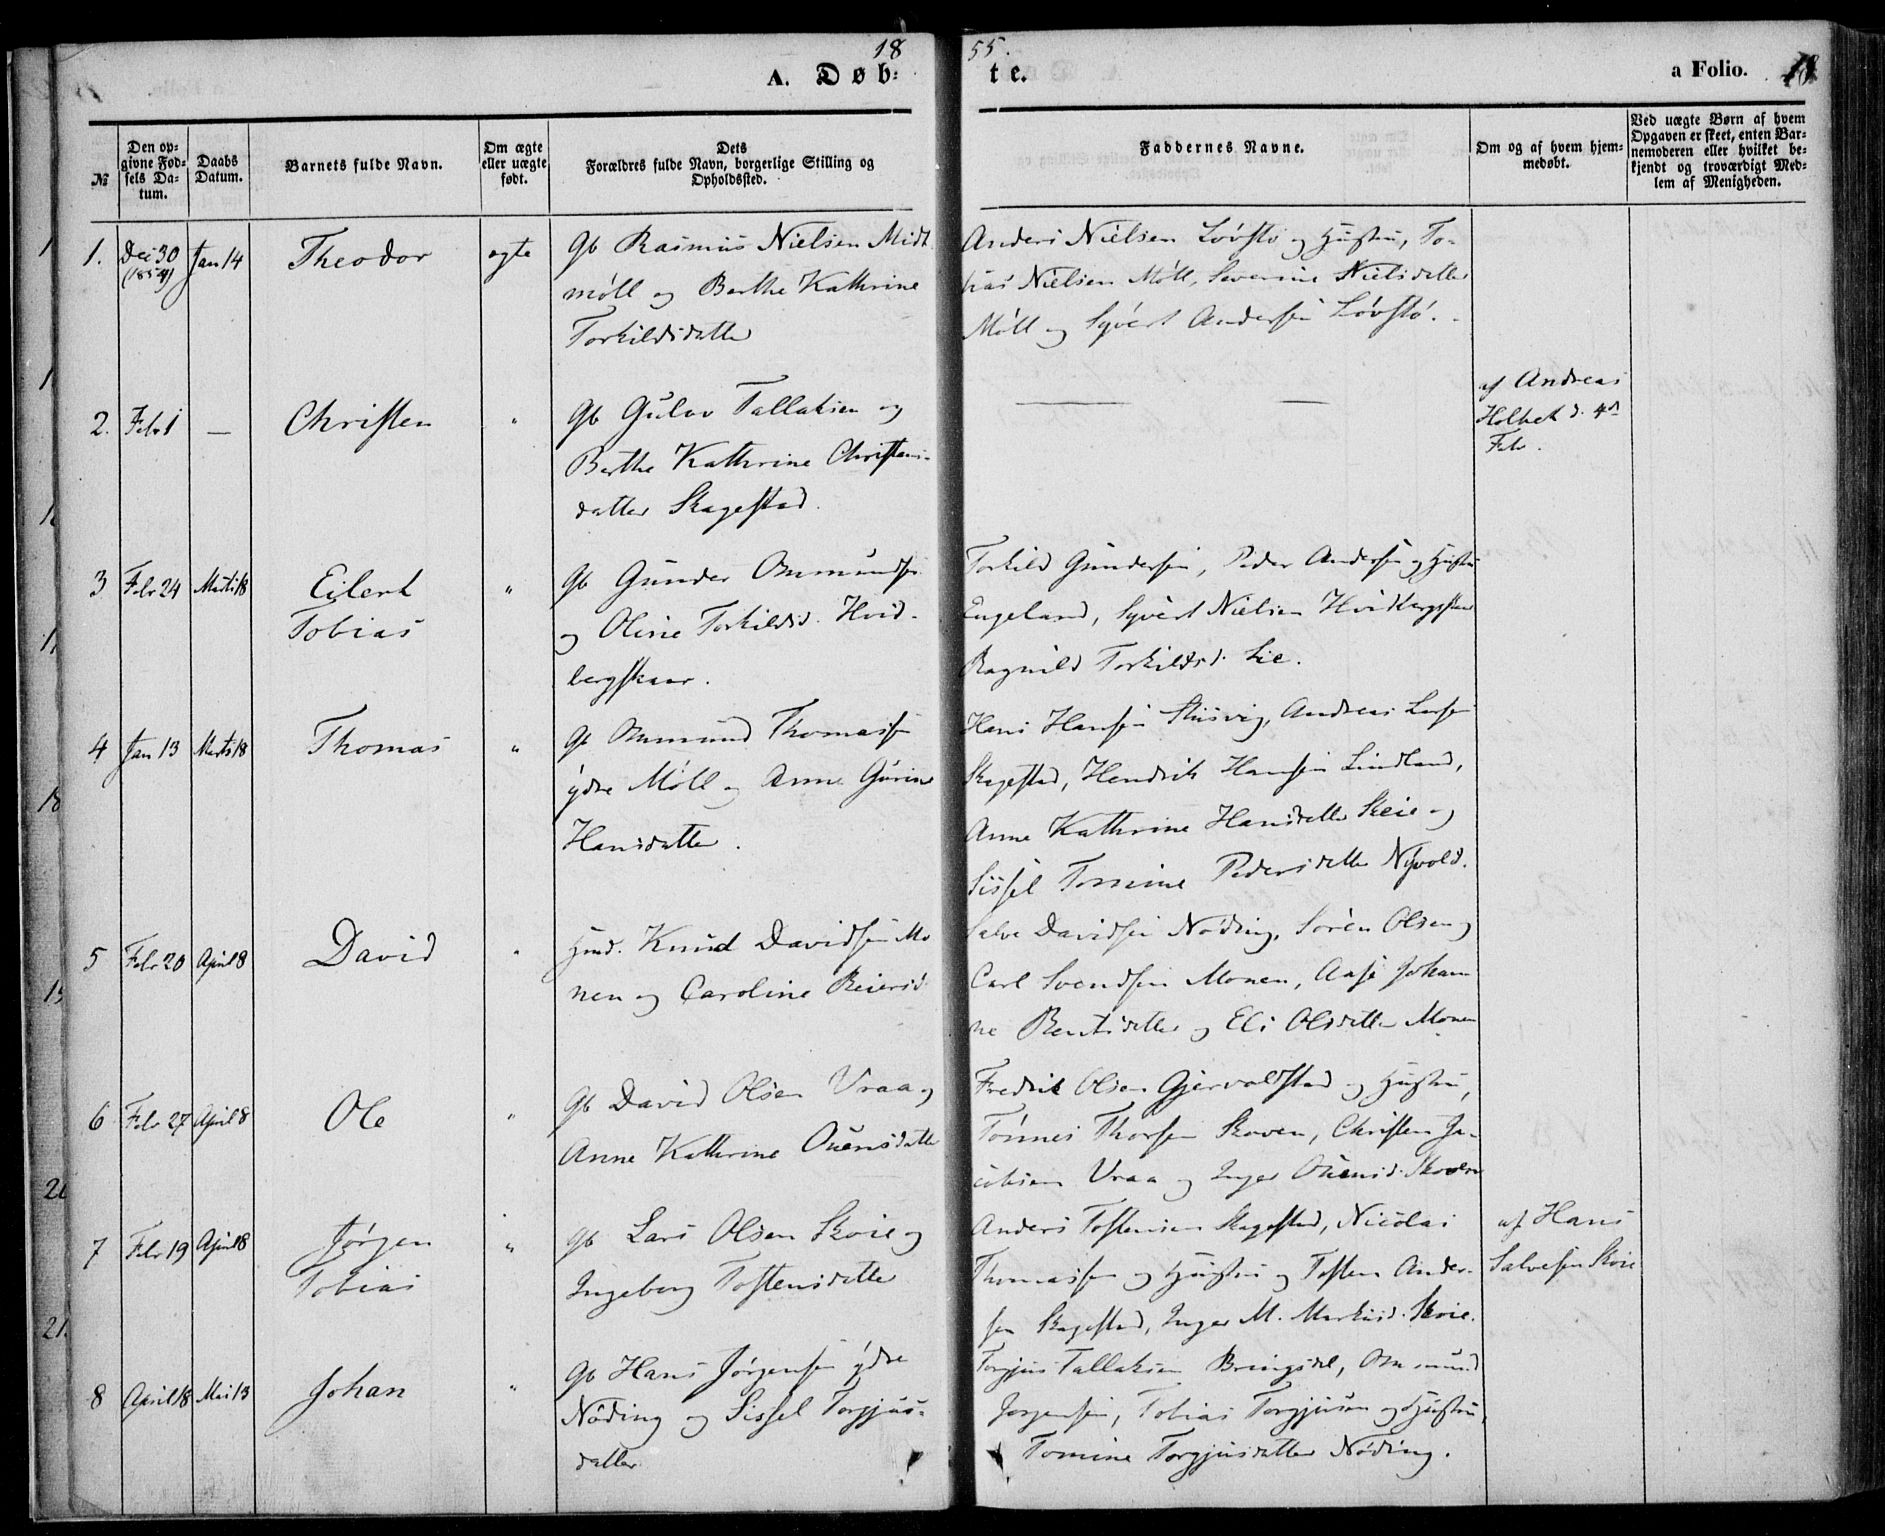 18
55.
A. Døb-
te.
a Folio.
№
Den op-
givne Fød-
sels Da-
tum.
Daabs
Datum.
Barnets fulde Navn.
Om ægte
eller uægte
født.
Dets
Forældres fulde Navn, borgerlige Stilling og
Opholdssted.
Faddernes Navne.
Om og af hvem hjem-
medøbt.
Ved uægte Børn af hvem
Opgaven er skeet, enten Bar-
nemoderen eller hvilket be-
kjendt og troværdigt Med-
lem af Menigheden.
1.
Dec 30
(1854)
Jan 14
Theodor
ægte
Gb Rasmus Nielsen Midt
møll og Berthe Kathrine
Torkildsdatter
Anders Nielsen Løvstø og Hustru, To-
bias Nielsen Møll, Severine Nielsdatter
Møll og Syvert Andersen Løvstø.
2.
Febr 1
—
Christen
"
Gb Gulov Tallaksen og
Berthe Kathrine Christens-
datter Skagestad.
—
af Andreas
Holbek d. 4de
Febr.
3
Febr 24
Marts 18
Eilert
Tobias
"
Gb Gunder Ommundsen
og Oline Torkildsd. Hvid-
bergskaar.
Torkild Gundersen, Peder Andersen og Hustru
Engeland, Syvert Nielsen Hvidbergskaar
Ragnild Torkildsd. Lie.
4
Jan 13
Marts 18
Thomas
"
Gb Ommund Thomassen
ydre Møll og Anne Gurine
Hansdatter.
Hans Hansen Stusvig, Andreas Larsen
Skagestad, Hendrik Hansen Lindland,
Anne Kathrine Hansdatter Skeie og
Sissel Tomine Pedersdatter Nyvold.
5
Febr 20
April 8
David
"
Hmd. Knud Davidsen Mo
nen og Caroline Reiersd.
Salve Davidsen Nøding, Søren Olsen og
Carl Svendsen Monen, Aase Johan
ne Bentsdatter og Eli Olsdatter Monen
6
Febr 27
April 8
Ole
"
Gb David Olsen Vraa og
Anne Kathrine Ouensdatter
Fredrik Olsen Gjervoldstad og Hustru,
Tønnes Thorsen Skoven, Christen Ja-
cobsen Vraa og Inger Ouensd. Skoven
7
Febr 19
April 8
Jørgen
Tobias
"
Gb Lars Olsen Skoie og
Ingeborg Tostensdatter
Anders Tostensen Skagestad, Nicolai
Thomassen og Hustru og Tosten Ander-
sen Skagestad, Inger M. Markusd. Skoie.
af Hans
Salvesen Skoie
8
April 18
Mai 13
Johan
"
Gb Hans Jørgensen ydre
Nøding og Sissel Torgjus-
datter
Torgjus Tallaksen Bringsdal, Ommund
Jørgensen, Tobias Torgjusen og Hustru,
Tomine Torgjusdatter Nøding.